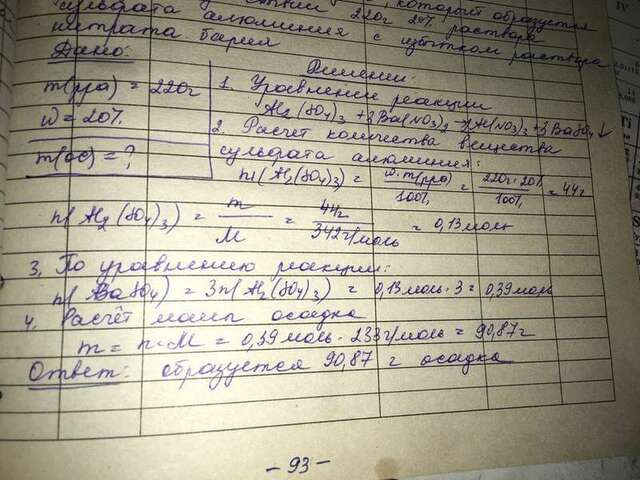 которой образуется
сульфата алюминия 220г 20% раствора
нитрата бария с избытком раствора
Дано:
m(рра) = 220г
ω = 20%
m(ос) = ?
Решение:
1. Уравнение реакции
Al2(SO4)3 + 3Ba(NO3)2 → 2Al(NO3)3 + 3BaSO4↓
2. Расчет количества вещества
сульфата алюминия:
m(Al2(SO4)3) = ω·m(рра)/100% = 220г·20%/100% = 44г
n(Al2(SO4)3) = m/M = 44г/342г/моль = 0,13моль
3. По уравнению реакции:
n(BaSO4) = 3n(Al2(SO4)3) = 0,13моль·3 = 0,39моль
4. Расчёт массы осадка
m = n·M = 0,39моль·233г/моль = 90,87г
Ответ: образуется 90,87 г осадка
- 93 -
IV